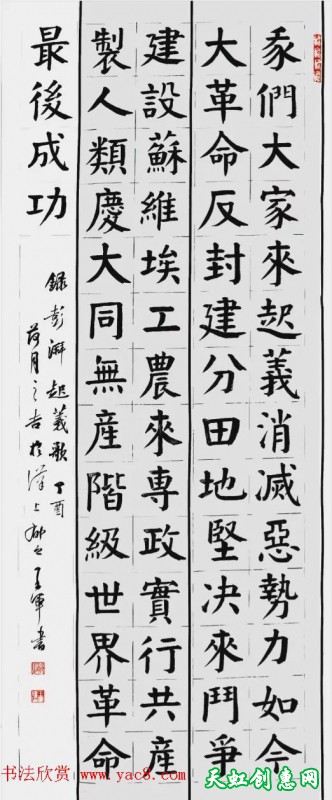 我們大家來起義消滅惡勢力如今
大革命反封建分田地堅决來鬥爭
建設蘇維埃工農來專政實行共産
製人類慶大同無産階級世界革命
最後成功
録彭湃起義歌 丁酉
荷月之吉於漢上 軍書
书法欣赏 www.yac8.com
天虹创惠网